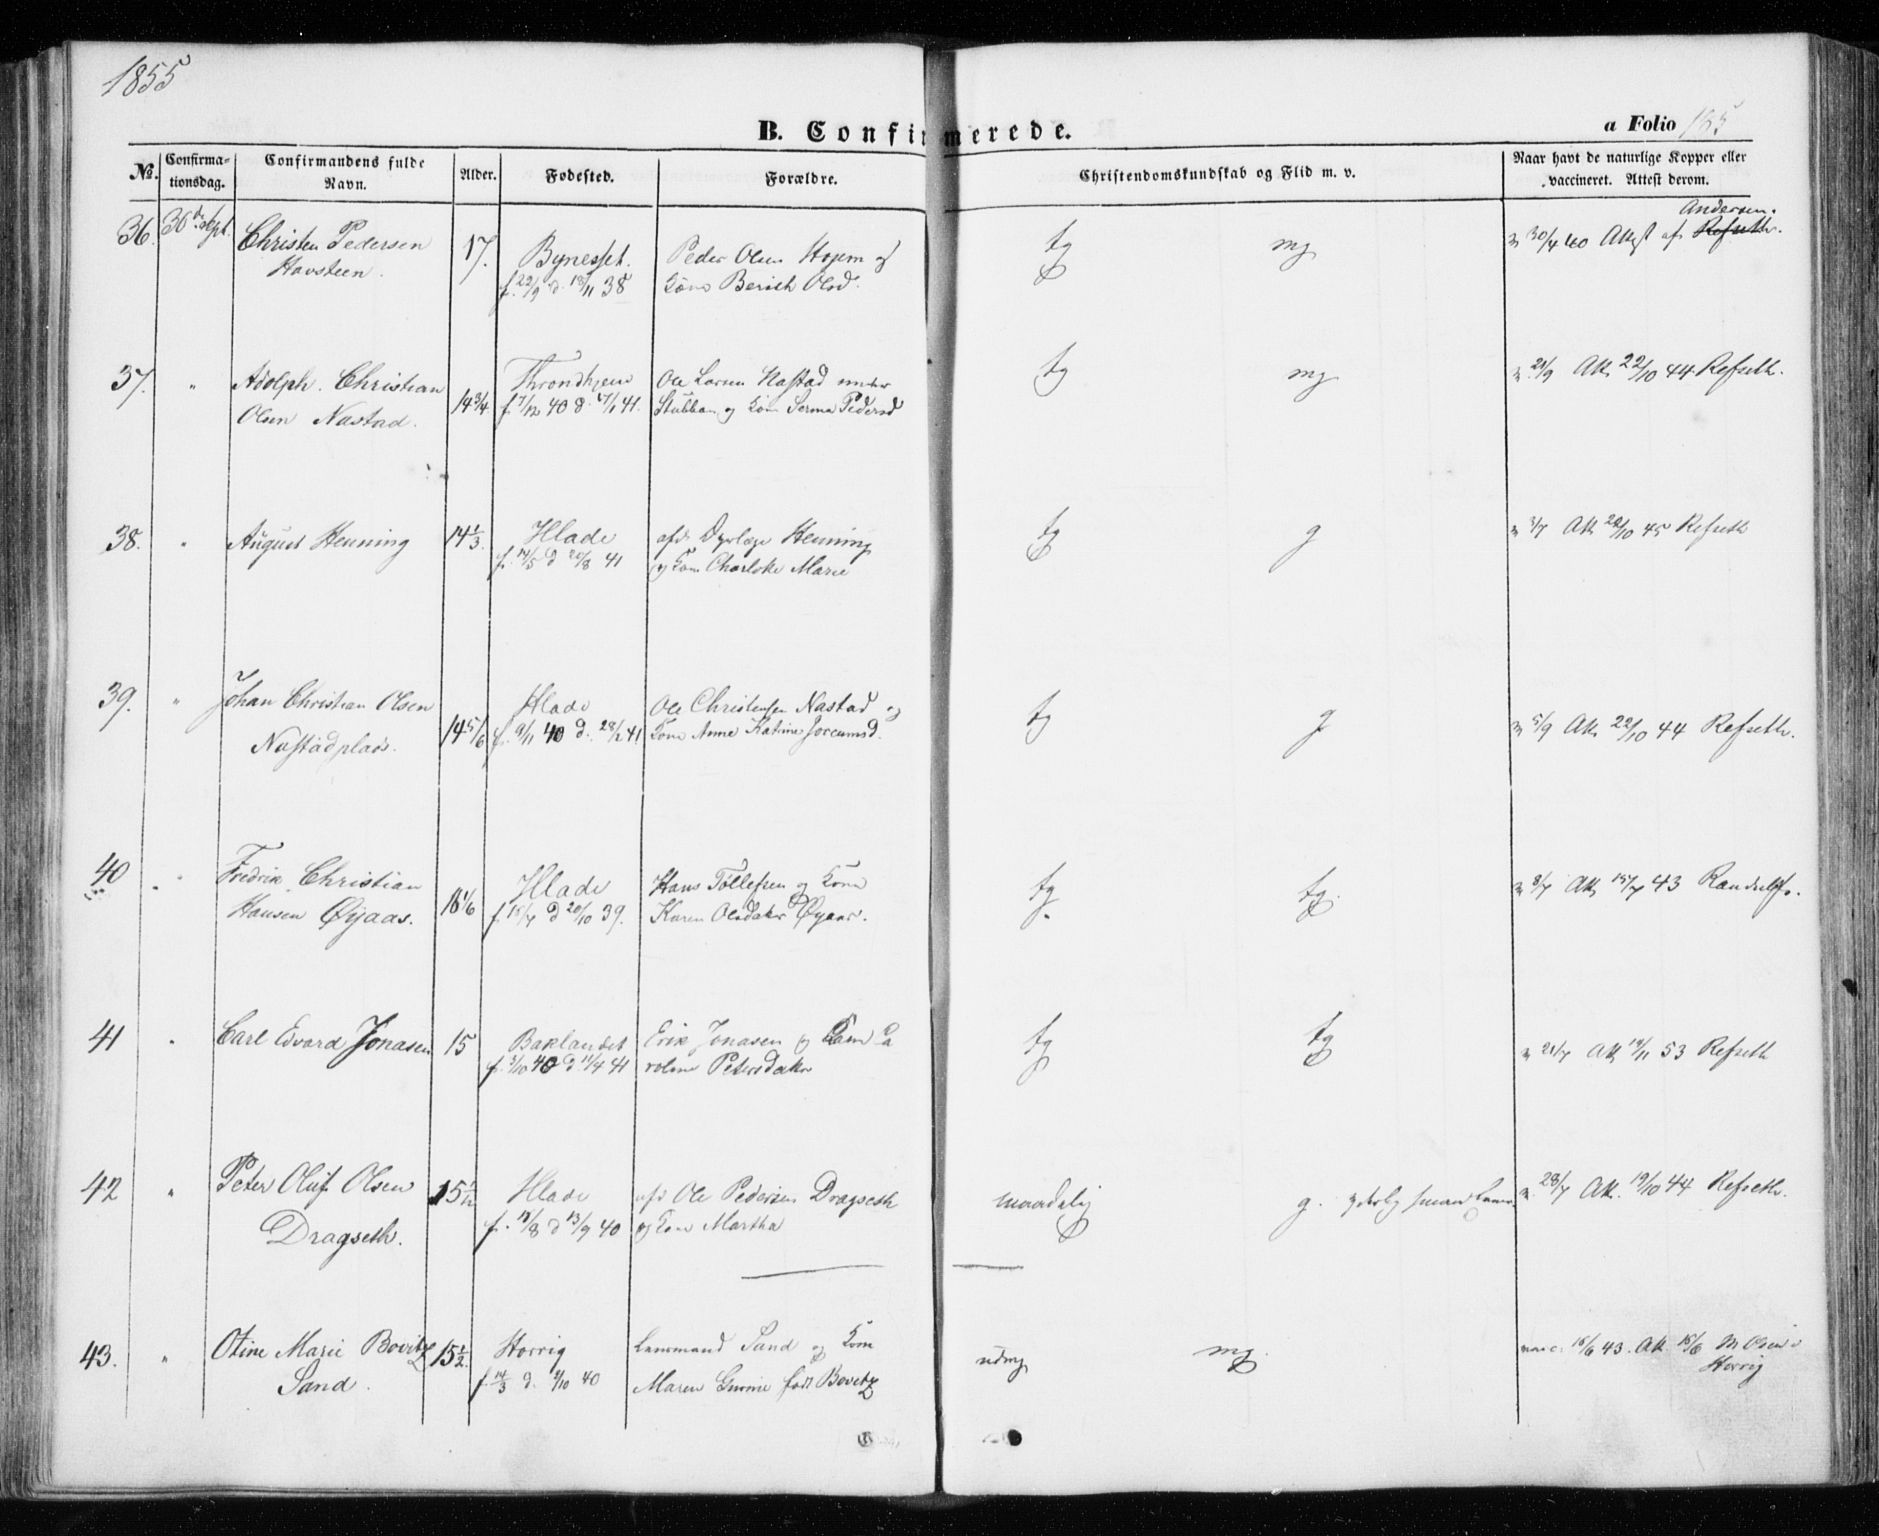 1855
B. Confirmerede.
a Folio 165
No. Confirma-tionsdag. Confirmandens fulde Navn. Alder. Fødested. Forældre. Christendomskundskab og Flid m. v. Naar havt de naturlige Kopper eller vaccineret. Attest derom.
36. 30 de Sept. Christen Pedersen 17. Bynesset. Peder Olsen og tg mg v 30/4 40 Attest af Refseth. Andersen.
Havsteen. f. 22/9 d. 18/11 38 Kone Berith Olsd.
37. " Adolph Christian 14 3/4 Throndhjem Ole Larsen Nastad under tg mg v. 21/9 Att. 22/10 44 Refseth.
Olsen Nastad. f. 7/12 40 d. 17/1 41. Stubban og Kone Pedersd
38. " August Henning 14 1/3. Hlade afd. Dyrlæge Henning tg g v 3/7 Att. 22/10 45 Refseth
f. 14/5 d 20/8 41 og Kone Charlotte Marie
39. " Johan Christian Olsen 14 5/6 Hlade Ole Christensen Nastad og tg g v 5/9 Att. 22/10 44 Refseth.
Nastadplads. f. 9/11 40 d. 28/2 41 Kone Anne Katrine
40 " Fredrik Christian 16 1/6 Hlade Hans Tollefsen og Kone tg tg. v 8/7 Att. 15/7 43
Hansen Øyaas. f. 15/7 d 20/10 39. Karen Olsdatter Øyaas.
41 " Carl Edvard Jonasen 15 Baklandet Erik Jonasen og Kone Ca tg tg v 21/7 Att. 14/11 53 Refseth
f. 3/10 40 d. 12/4 41 roline Petersdatter
42 " Peter Oluf Olsen 15 1/12 Hlade afd. Ole Pedersen Dragseth maadelig g. v. 28/7 Att. 19/10 44 Refseth.
Dragseth. f. 15/8 d 13/9 40 og Kone Martha
43. " Otine Marie Bovitz 15 1/2. Horrig Lensmand Sand og Kone udmg mg. vacc. 16/6 43. Att. 16/6 M Olsen i
Sand. f. 14/3 d. 4/10 40 Maren født Bovitz Horrig